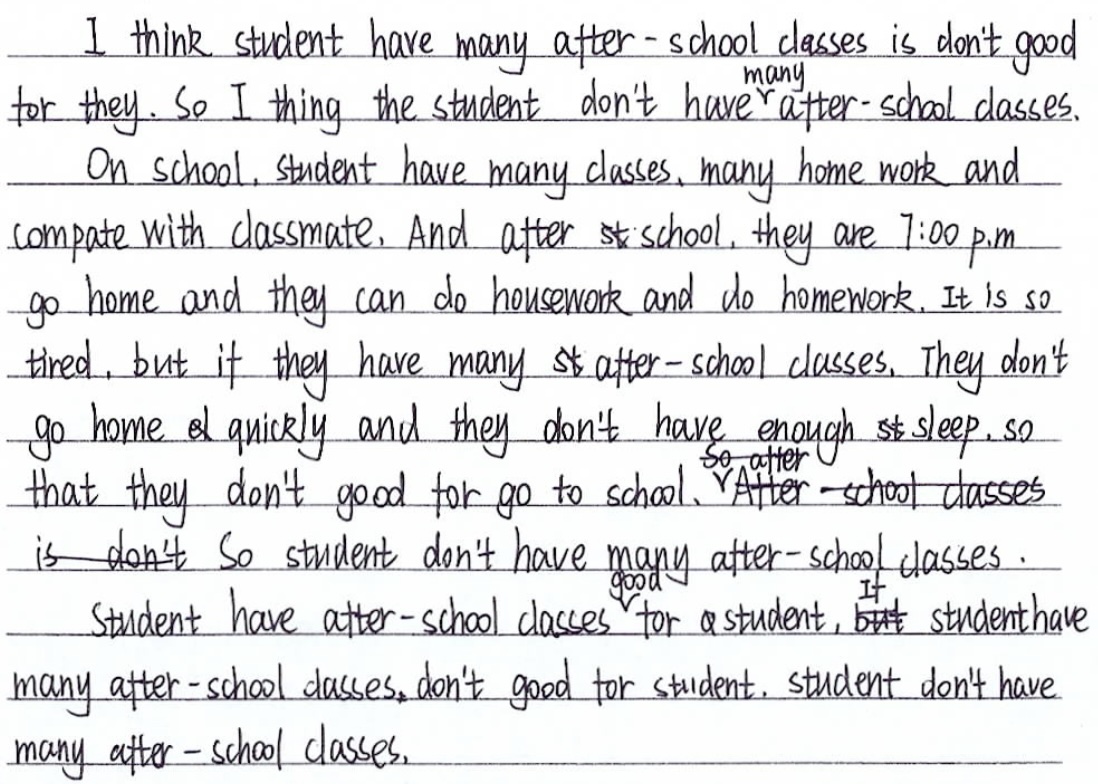 I think student have many after-school classes is don't good
for they. So I thing the student don't have many after-school classes.
On school, student have many classes, many home work and
compate with classmate. And after st school, they are 7:00 p.m
go home and they can do housework and do homework. It is so
tired, but if they have many st after-school classes. They don't
go home quickly and they don't have enough st sleep. so
that they don't good for go to school. So after After-school classes
is don't So student don't have many after-school classes.
Student have after-school classes good for a student, If but student have
many after-school classes. don't good for student. student don't have
many after-school classes.